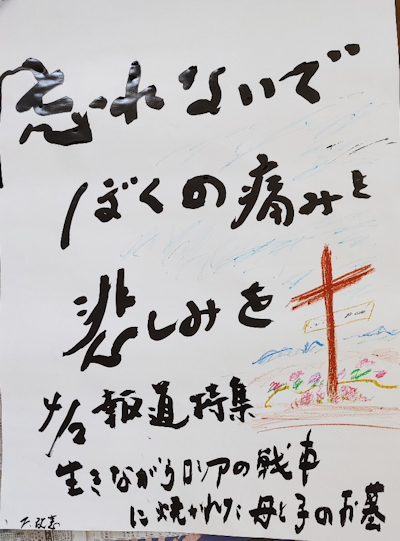 忘れないで
ぼくの痛みと
悲しみを
報道特集
生きながらロシアの戦車
に焼かれた母と子のお墓